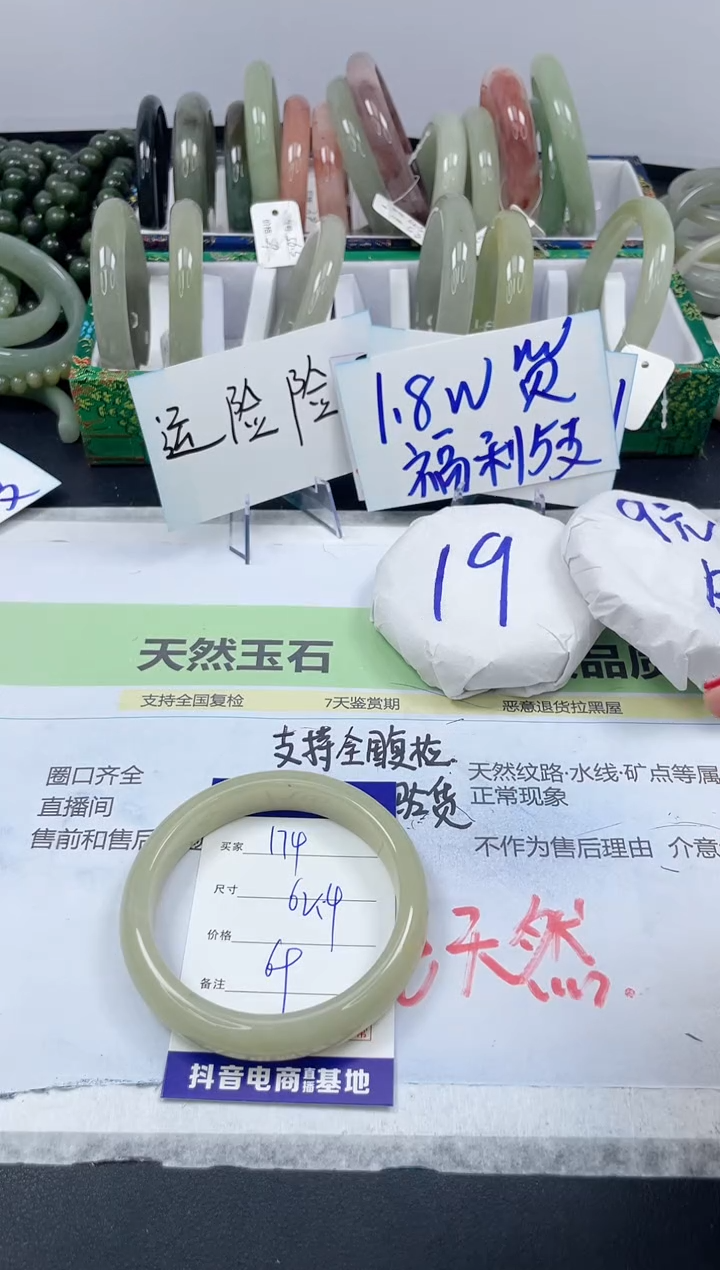 运险险
1.8W赞
福利5支
19
9元
天然玉石
品质
支持全国复检
7天鉴赏期
恶意退货拉黑屋
支持全国复检
验货
圈口齐全
直播间
售前和售后
天然纹路·水线·矿点等属
正常现象
不作为售后理由 介意
天然
买家 174
尺寸
价格
备注
抖音电商直播基地